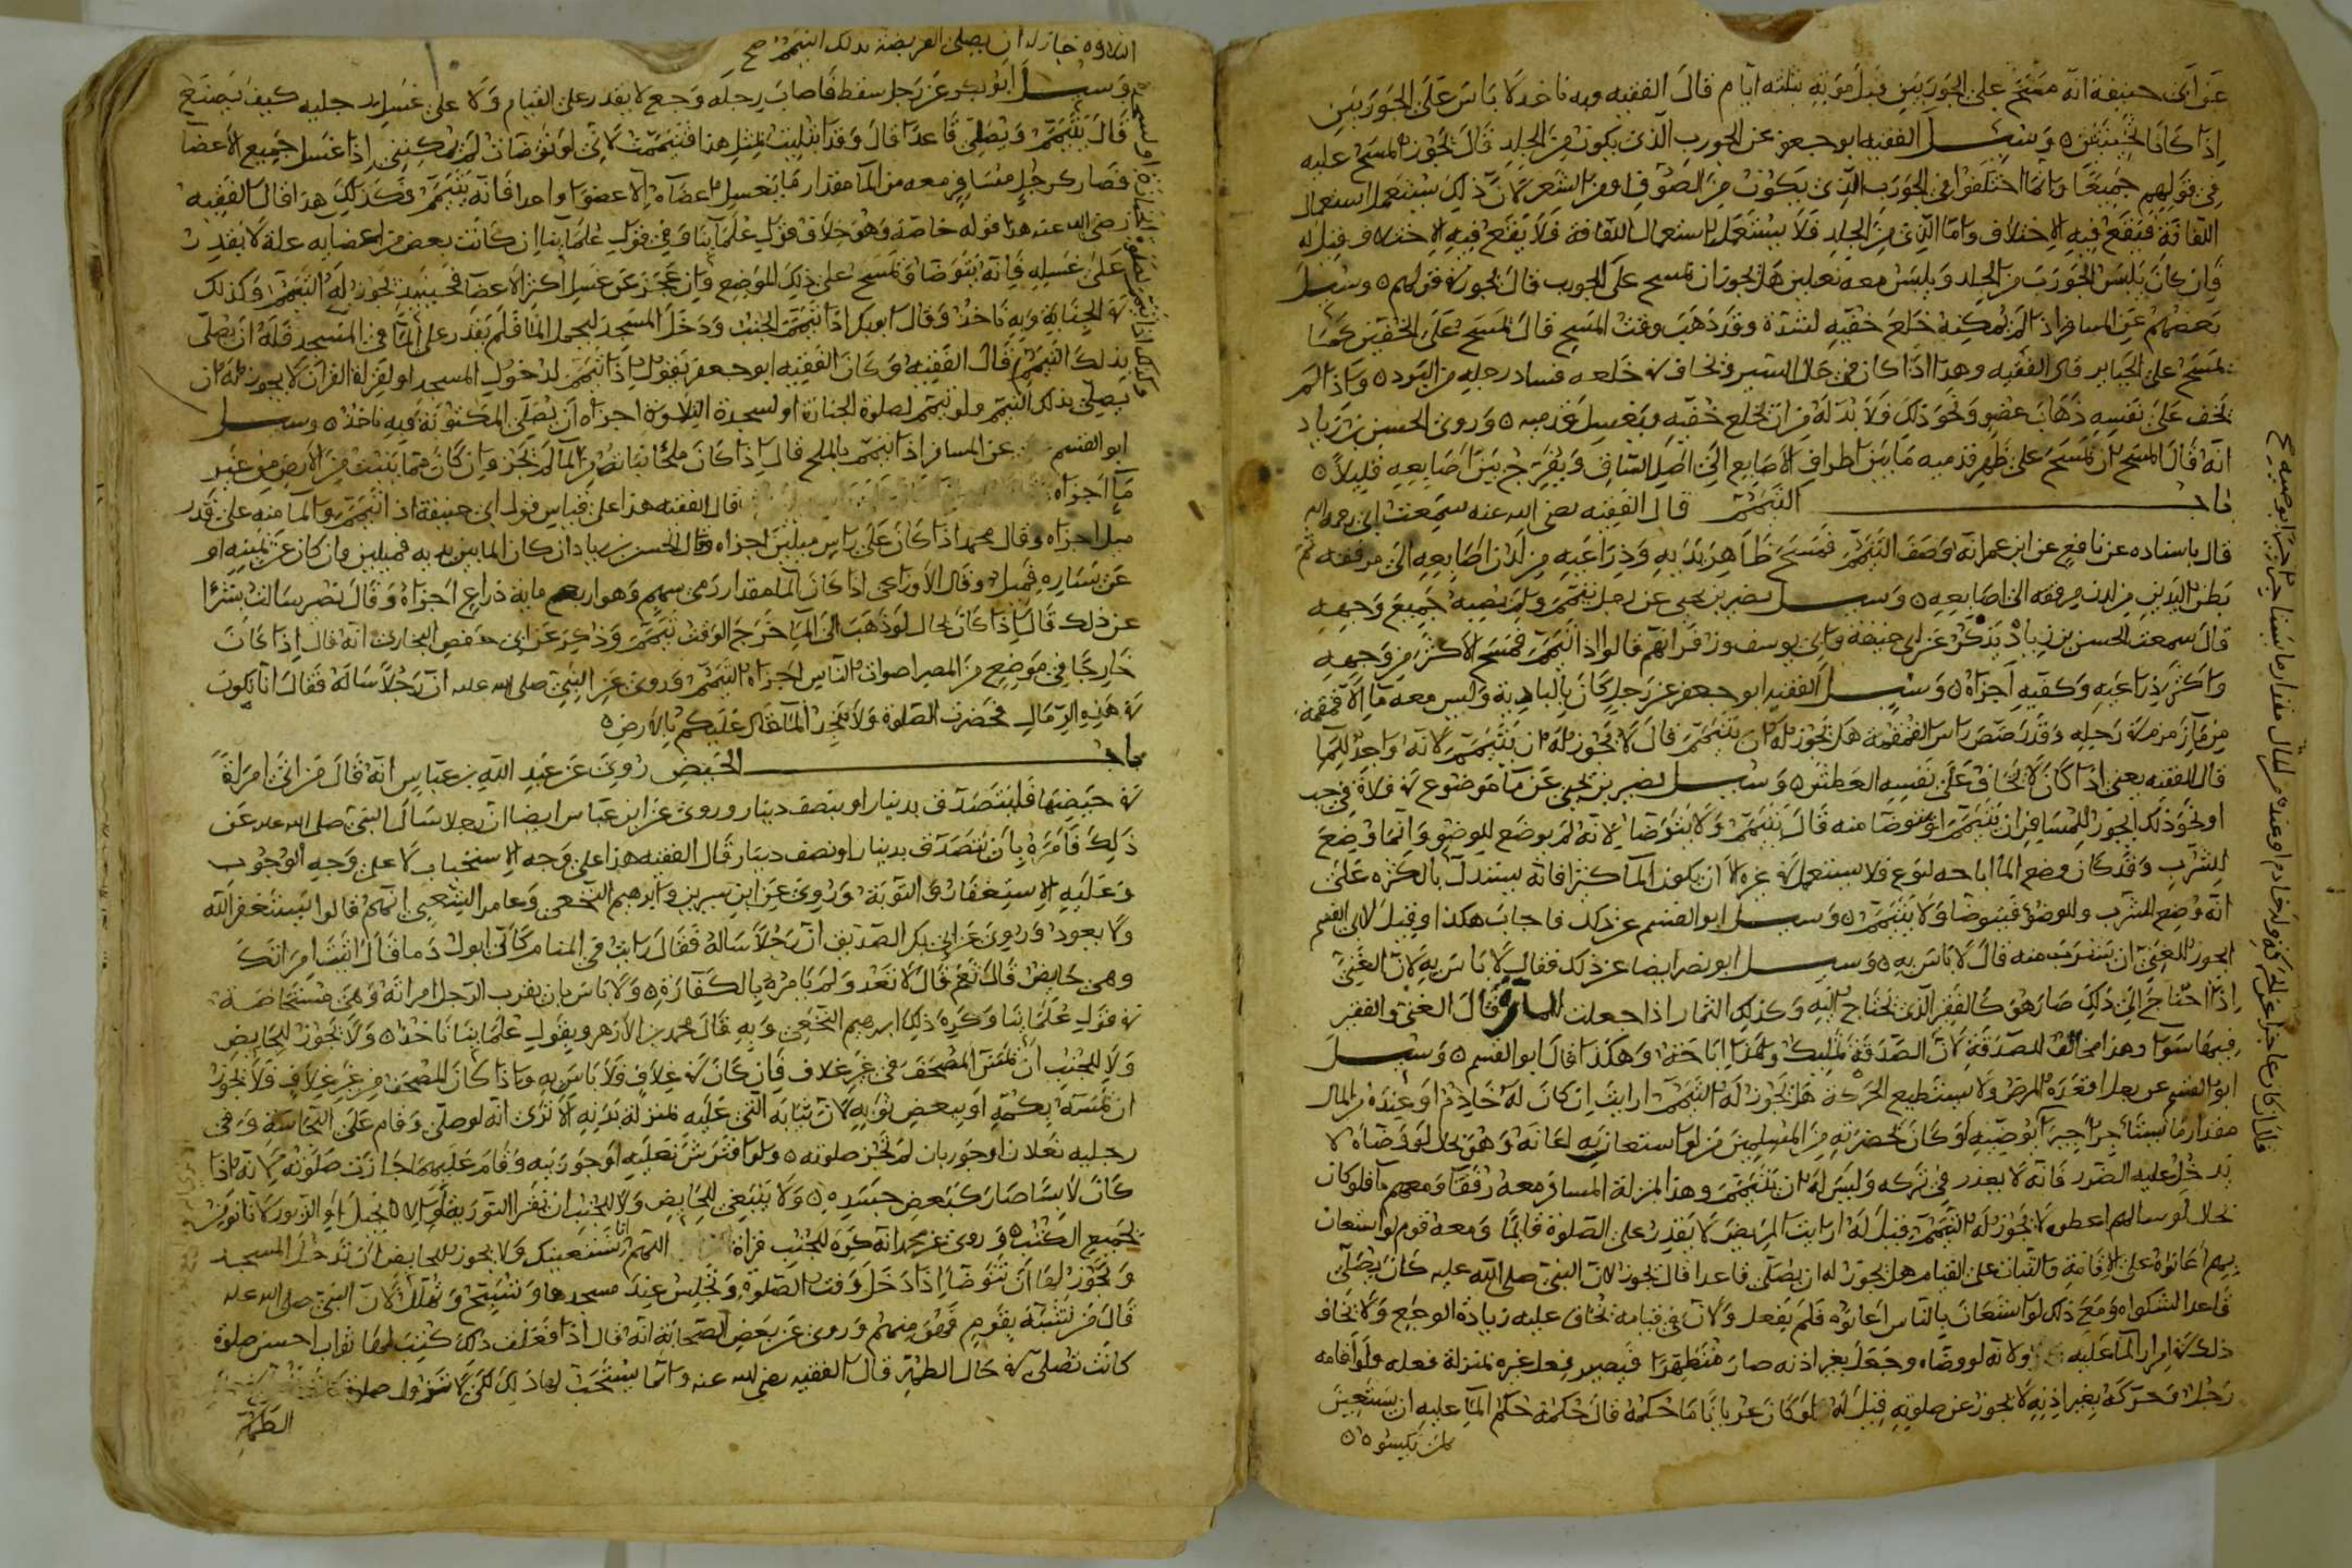 عن ابى حنيفة انه مسح على الجوربين قبل موته بثلثة ايام قال الفقيه وبه ناخذ لا باس على الجوربين
اذا كانا ثخينين ٥ وسئل الفقيه ابو جعفر عن الجورب الذى يكون من الجلد قال يجوز المسح عليه
فى قولهم جميعا وانما اختلفوا فى الجورب الذى يكون من الصوف او من الشعر لان ذلك يستعمل استعمال
اللفافة فيقع فيه الاختلاف واما الذى من الجلد فلا يستعمل استعمال اللفافة فلا يقع فيه الاختلاف قيل له
فان كان يلبس الجورب من الجلد ويلبس معه نعلين هل يجوز ان يمسح على الجورب قال يجوز فى قولهم ٥ وسئل
بعضهم عن المسافر اذا لم يمكنه خلع خفيه لشدة وقد ذهب وقت المسح قال يمسح على الخفين كما
يمسح على الجباير قال الفقيه وهذا اذا كان فى حال السير فخاف فى خلعه فساد رجليه من البرد ٥ واذا لم
يخف على نفسه ذهاب عضو ونحو ذلك فلا بد له من ان يخلع خفيه ويغسل قدميه ٥ وروى الحسن بن زياد
انه قال المسح ان يمسح على ظهر قدميه ما بين اطراف الاصابع الى اصل الساق ويفرج بين اصابعه قليلا ٥
باب التيمم قال الفقيه رضى الله عنه سمعت ابى رحمه الله
قال باسناده عن نافع عن ابن عمر انه وصف التيمم فمسح ظاهر يديه وذراعيه من لدن اصابعه الى مرفقه ثم
بطن اليدين من لدن مرفقه الى اصابعه ٥ وسئل نصير بن يحيى عن رجل تيمم ولم يصب جميع وجهه
قال سمعت الحسن بن زياد يذكر عن ابى حنيفة وابى يوسف وزفر انهم قالوا اذا تيمم فمسح الاكثر من وجهه
واكثر ذراعيه وكفيه اجزاه ٥ وسئل الفقيه ابو جعفر عن رجل كان بالبادية وليس معه ماء الا قمقمة
من ماء زمزم فى رحله وقد رصص راس القمقمة هل يجوز له ان يتيمم قال لا يجوز له ان يتيمم لانه واجد للماء
قال الفقيه يعنى اذا كان لا يخاف على نفسه العطش ٥ وسئل نصير بن يحيى عن ماء موضوع فى فلاة فى حب
او نحو ذلك ايجوز للمسافر ان يتيمم او يتوضا منه قال يتيمم ولا يتوضا لانه لم يوضع للوضوء وانما وضع
للشرب وقد كان وضع الماء اباحة لنوع فلا يستعمل فى غيره الا ان يكون الماء كثيرا فانه يستدل بالكثرة على
انه وضع للشرب وللوضوء فيتوضا ولا يتيمم ٥ وسئل ابو القسم عن ذلك فاجاب هكذا وقيل لابى القسم
ايجوز للغنى ان يشرب منه قال لا باس به ٥ وسئل ابو نصر ايضا عن ذلك فقال لا باس به لان الغنى
اذا احتاج الى ذلك صار هو كالفقير الذى يحتاج اليه وكذلك الثمار اذا جعلت للمارة قال الغنى والفقير
فيها سوا وهذا مخالف للصدقة لان الصدقة تمليك وهذا اباحة وهكذا قال ابو القسم ٥ وسئل
ابو القسم عن رجل اقعده المرض ولا يستطيع الحركة هل يجوز له التيمم ارايت ان كان له خادم او عنده من المال
مقدار ما يستاجر اجيرا يوضيه او كان بحضرته من المسلمين من لو استعان به اعانه وهو بحال لو وضاه لا
يدخل عليه الضرر فانه لا يعذر فى تركه وليس له ان يتيمم وهذا بمنزلة المسافر معه رفقا ومعهم ماء فلو كان
بحال لو سالهم اعطوه لا يجوز له التيمم قيل له ارايت المريض لا يقدر على الصلوة قايما ومعه قوم لو استعان
بهم اعانوه على الاقامة والثبات على القيام هل يجوز له ان يصلى قاعدا قال يجوز لان النبى صلى الله عليه كان يصلى
قاعدا لشكواه ومع ذلك لو استعان بالناس اعانوه فلم يفعل ولان فى قيامه يخاف عليه زيادة الوجع ولا يخاف
ذلك فى امرار الماء عليه ولانه لو وضاه رجل بغير اذنه صار متطهرا فيصير فعل غيره بمنزلة فعله ولو اقامه
رجل وحركه بغير اذنه لا يجوز عن صلوته قيل له لو كان عريانا ما حكمه قال حكمه حكم الماء عليه ان يستعين
بمن يكسوه ٥
التلاوة جاز له ان يصلى الفريضة بذلك التيمم صح
وسئل ابو بكر عن رجل سقط فاصاب رجله وجع لا يقدر على القيام ولا على غسل رجليه كيف يصنع
قال يتيمم ويصلى قاعدا قال وقد ابتليت بمثل هذا فتيممت لانى لو توضات لم يمكننى اذا غسل جميع الاعضا
فصار كرجل مسافر معه من الماء مقدار ما يغسل اعضاه الا عضوا واحدا فانه يتيمم فكذلك هذا قال الفقيه
رضى الله عنه هذا قوله خاصة وهو خلاف قول علماينا وفى قول علماينا ان كانت بعض من اعضايه علة لا يقدر
على غسله فانه يتوضا ويمسح على ذلك الموضع وان عجز عن غسل اكثر الاعضا فحينيذ يجوز له التيمم وكذلك
فى الجنابة وبه ناخذ وقال ابو بكر اذا تيمم الجنب ودخل المسجد ليحمل الماء فلم يقدر على الماء فى المسجد فله ان يصلى
بذلك التيمم قال الفقيه وكان الفقيه ابو جعفر يقول اذا تيمم لدخول المسجد او لقراة القران لا يجوز له ان
يصلى بذلك التيمم ولو تيمم لصلوة الجنازة او لسجدة التلاوة اجزاه ان يصلى المكتوبة وبه ناخذ ٥ وسئل
ابو القسم عن المسافر اذا تيمم بالملح قال اذا كان ملحا نباته من الماء لم يجز وان كان مما ينبت من الارض من غير
ماء اجزاه قال الفقيه هذا على قياس قول ابى حنيفة اذا تيمم والماء منه على قدر
ميل اجزاه وقال محمد اذا كان على راس ميلين اجزاه وقال الحسن بن زياد ان كان الماء بين يديه فميلين وان كان عن يمينه او
عن يساره فميل وقال الاوزاعى اذا كان الماء مقدار رمى سهم وهو اربع ماية ذراع اجزاه وقال نصر سالت بشرا
عن ذلك قال اذا كان بحال لو ذهب الى الماء خرج الوقت تيمم وذكر عن ابى حفص البخارى انه قال اذا كان
خارجا فى موضع من المصر اصوات الناس اجزاه التيمم وروى عن النبى صلى الله عليه ان رجلا ساله فقال انا نكون
فى هذه الرمال فحضرت الصلوة ولا نجد الماء قال عليكم بالارض ٥
باب الحيض روى عن عبد الله بن عباس انه قال من اتى امراة
فى حيضها فليتصدق بدينار او بنصف دينار وروى عن ابن عباس ايضا ان رجلا سال النبى صلى الله عليه عن
ذلك فامره بان يتصدق بدينار او نصف دينار قال الفقيه هذا على وجه الاستحباب لا على وجه الوجوب
وعليه الاستغفار والتوبة وروى عن ابن سيرين وابرهيم النخعى وعامر الشعبى انهم قالوا يستغفر الله
ولا يعود وروى عن ابى بكر الصديق ان رجلا ساله فقال رايت فى المنام كانى ابول دما قال اتيت امراتك
وهى حايض قال نعم قال لا تعد ولم يامره بالكفارة ٥ ولا باس بان يقرب الرجل امراته وهى مستحاضة
فى قول علماينا وكره ذلك ابرهيم النخعى وبه قال محمد بن الازهر وبقول علماينا ناخذ ٥ ولا يجوز للحايض
ولا للجنب ان يمس المصحف فى غير غلاف فان كان فى غلاف فلا باس به واذا كان المصحف من غير غلاف فلا يجوز
ان يمسه بكمه او ببعض ثوبه لان ثيابه التى عليه بمنزلة بدنه الا ترى انه لو صلى وقام على النجاسة وفى
رجليه نعلان او جوربان لم تجز صلوته ٥ ولو افترش نعليه او جوربيه وقام عليهما جازت صلوته لانه اذا
كان لابسا صار كبعض جسده ٥ ولا ينبغى للحايض ولا للجنب ان تقرا التورية او الانجيل او الزبور لانا نومن
بجميع الكتب ٥ وروى عن محمد انه كره للجنب قراة اللهم انا نستعينك ولا يجوز للحايض ان تدخل المسجد
ويجوز لها ان تتوضا اذا دخل وقت الصلوة وتجلس عند مسجدها وتسبح وتهلل لان النبى صلى الله عليه
قال من تشبه بقوم فهو منهم وروى عن بعض الصحابة انه قال اذا فعلت ذلك كتبت لها ثواب احسن صلوة
كانت تصلى فى حال الطهر قال الفقيه رضى الله عنه وانما يستحب لها ذلك لكى لا تزول
الطهر